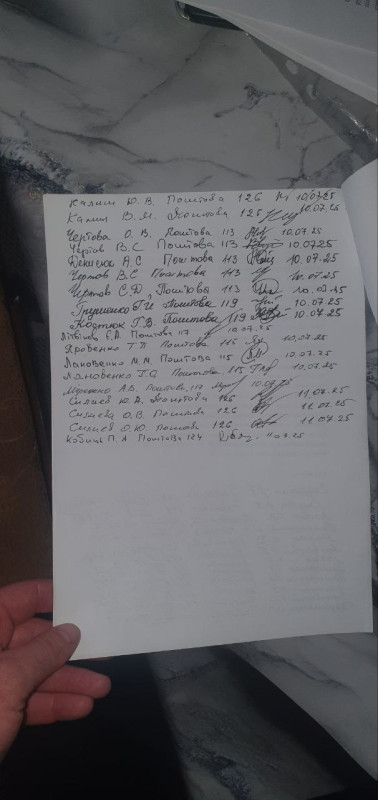 Калин Ю. В. Поштова 126 10/07.25
Калин В. М. Поштова 126 10.07.25
Чертова О. В. Поштова 113 10.07.25
Чертов В. С Поштова 113 10.07.25
А.С Поштова 113 10.07.25
Чертов В.С Поштова 113 10.07.25
Чертов С.Д. Поштова 113 10.07.25
Грушенко Г.И Поштова 119 10.07.25
Г.В. Поштова 119 10.07.25
Літвінов Є.А. Поштова 117 10.07.25
Яровенко Т. В Поштова 116 10.07.25
М.М. Поштова 115 10.07.25
Т.О. Поштова 115 10.07.25
А.В. Поштова, 114 10.07.25
Силаев Ю. А. Поштова 126 11.07.25
Силаева О. В. Поштова 126 11.07.25
Силаев О. Ю. Поштова 126 11.07.25
П. А Поштова 124 11.07.25